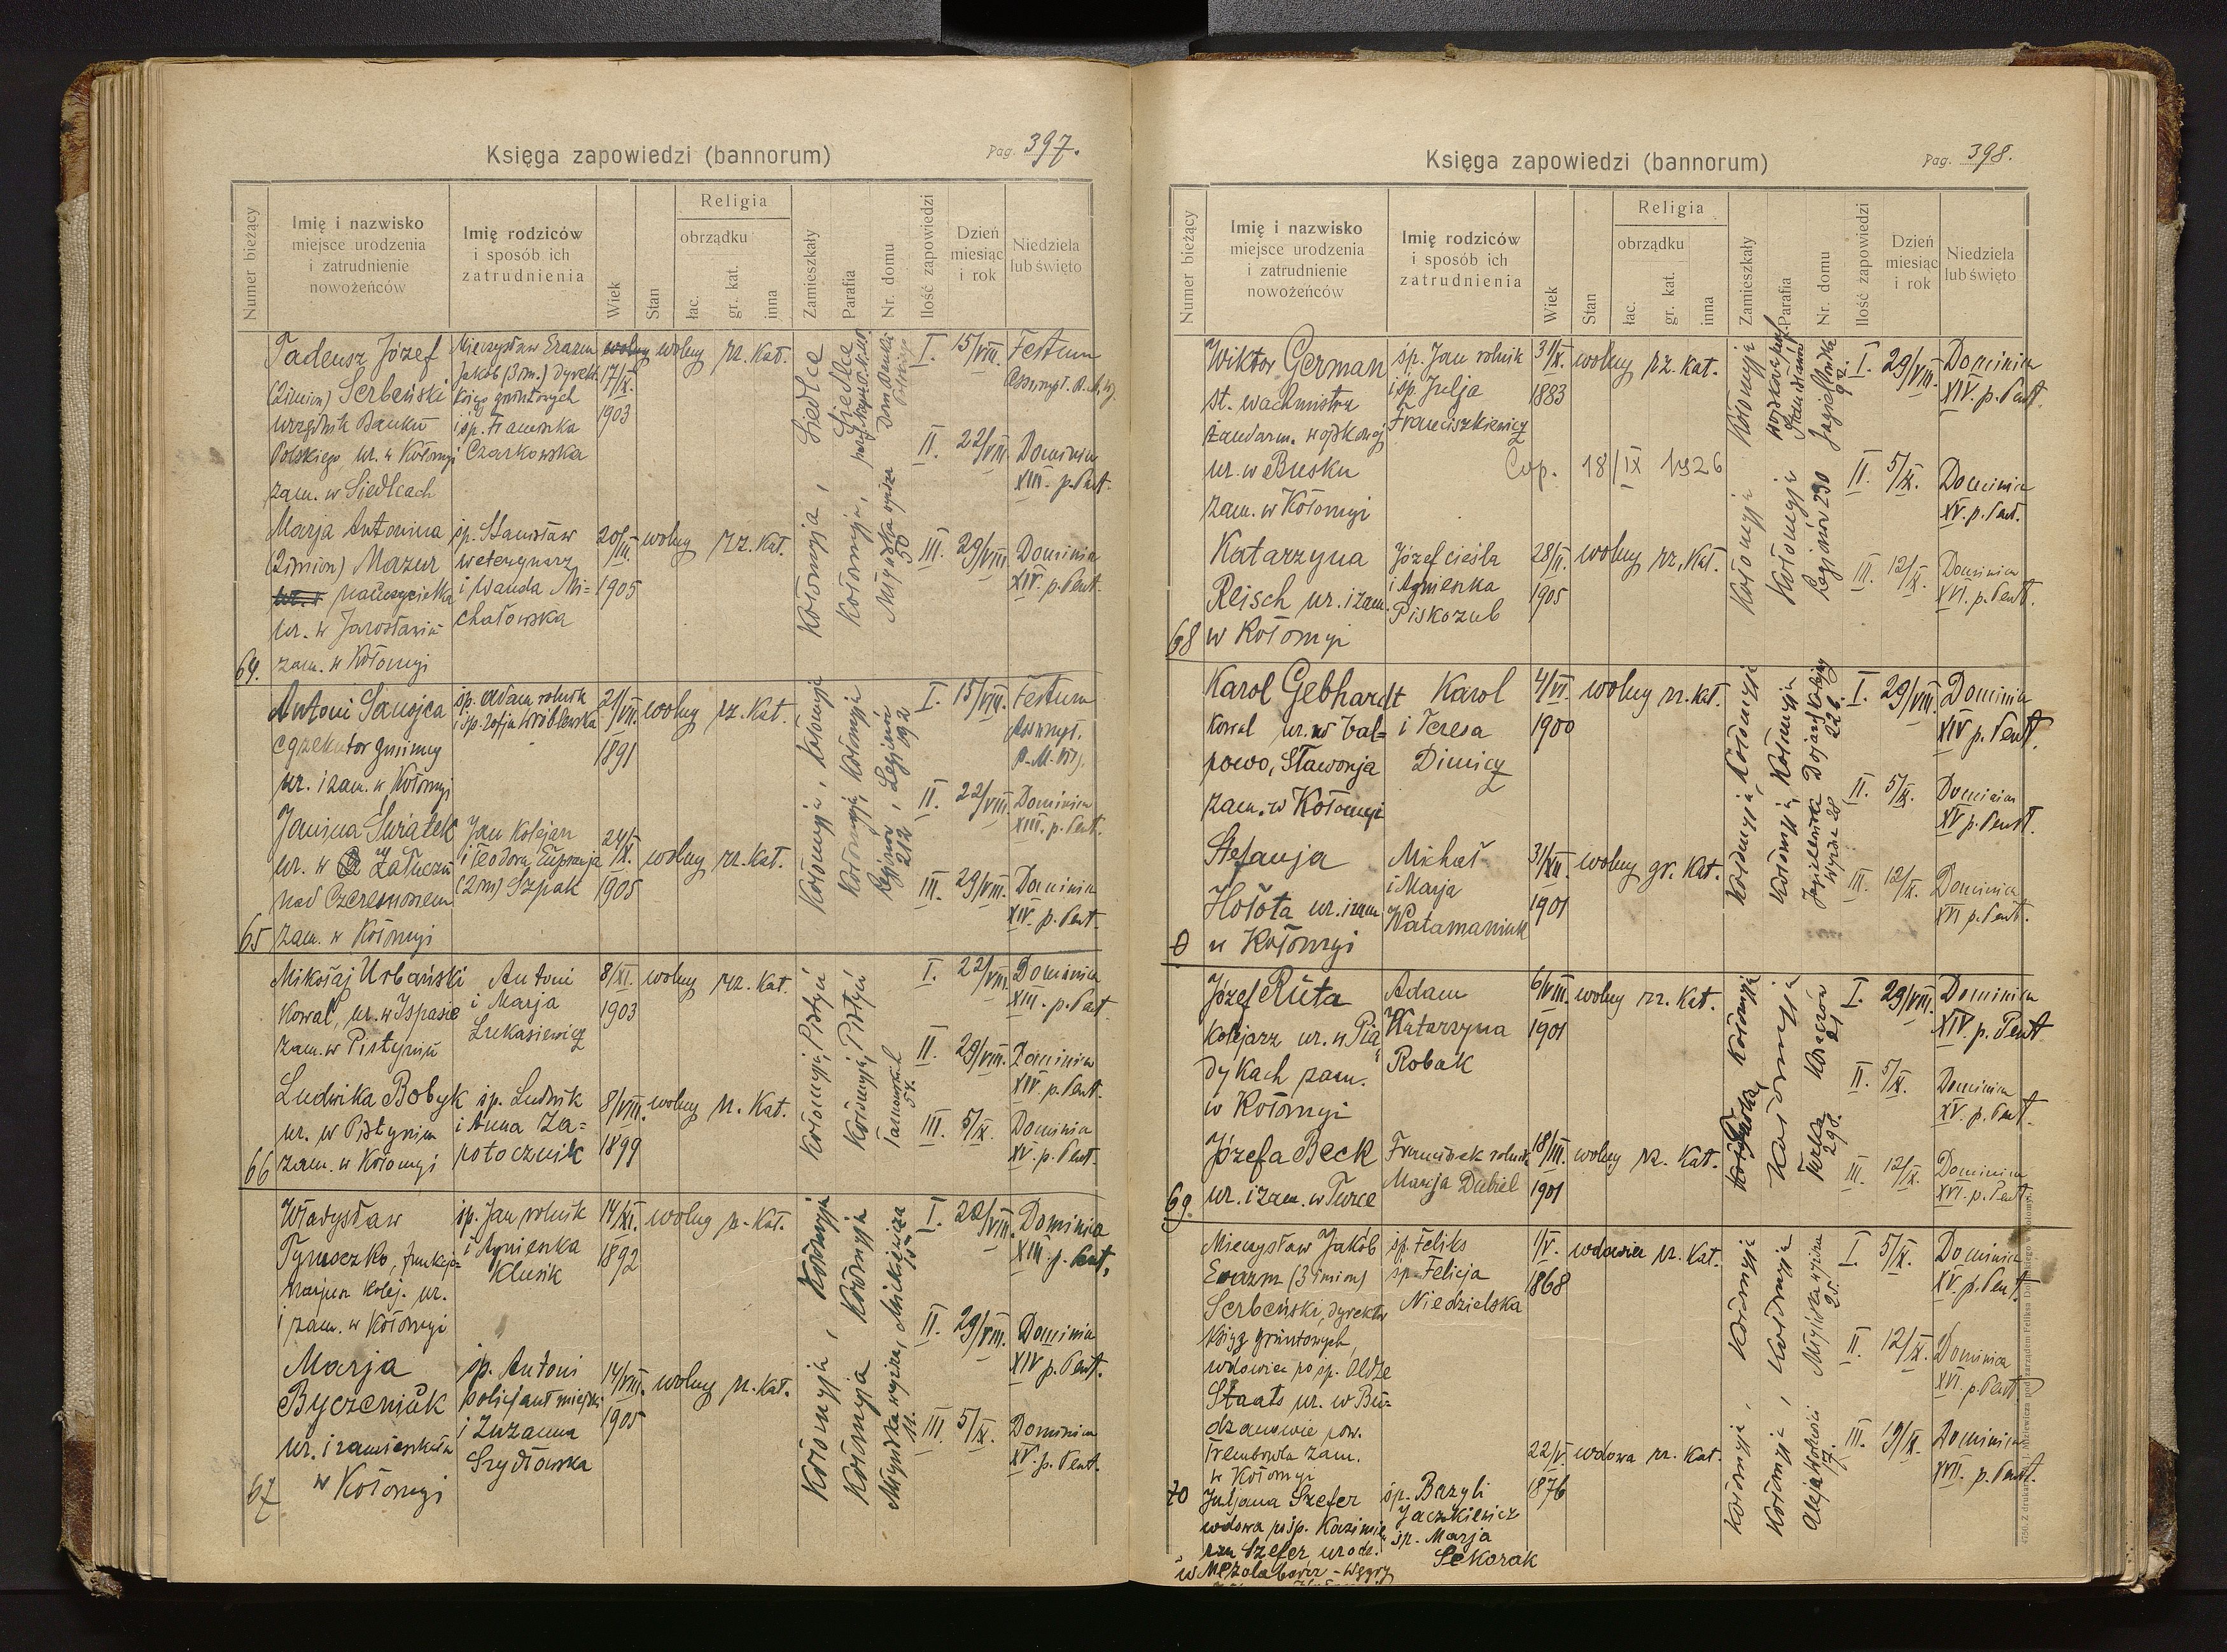 Księga zapowiedzi (bannorum)
Pag. 397.
Numer bieżący
Imię i nazwisko
miejsce urodzenia
i zatrudnienie
nowożeńców
Imię rodziców
i sposób ich
zatrudnienia
Wiek
Stan
Religia
obrządku
łac.
gr. kat.
inna
Zamieszkały
Parafia
Nr. domu
Ilość zapowiedzi
Dzień
miesiąc
i rok
Niedziela
lub święto
Tadeusz Józef
(2 imion) Serbeński
urzędnik Banku
Polskiego, ur. w Kołomyi
zam. w Siedlcach
Mieczysław Erazm
Jakób (3 im.) dyrekt.
ksiąg gruntowych
i śp. Franciszka
Czarkowska
17/IX. 1903
wolny rz. kat.
Marja Antonina
(2 imion) Mazur
nauczycielka
ur. w Jarosławiu
64. zam. w Kołomyi
śp. Stanisław
weterynarz
i Wanda Mi=
chałowska
20/III. 1905
wolny rz. kat.
Kołomyja, Siedlce
Kołomyja, Siedlce
I. 15/VIII. Festum
Assumpt. B.M.V.
II. 22/VIII. Dominica
XIII. p. Pent.
III. 29/VIII. Dominica
XIV. p. Pent.
Antoni Sanojca
egzekutor gminny
ur. i zam. w Kołomyi
śp. Adam rolnik
i śp. Zofja Wróblewska
21/VII. 1891
wolny rz. kat.
Janina Świątek
ur. w Załuczu
nad Czeremoszem
65 zam. w Kołomyi
Jan Kolejarz
i Teodora Eufrozyja
(2 im) Szpak
24/IX. 1905
wolny rz. kat.
Kołomyja, Kołomyja
Kołomyja, Kołomyja
Legjonów 212, Legjonów 192
I. 15/VIII. Festum
Assumpt.
B.M.V.
II. 22/VIII. Dominica
XIII. p. Pent.
III. 29/VIII. Dominica
XIV. p. Pent.
Mikołaj Urbański
kowal, ur. w Ispasie
zam. w Pistyniu
Antoni
i Marja
Łukasiewicz
8/XI. 1903
wolny rz. kat.
Ludwika Bobyk
ur. w Pistyniu
66 zam. w Kołomyi
śp. Ludwik
i Anna Za=
potocznik
8/VIII. 1899
wolny rz. kat.
Kołomyja, Pistyń
Kołomyja, Pistyń
I. 22/VIII. Dominica
XIII. p. Pent.
II. 29/VIII. Dominica
XIV. p. Pent.
III. 5/IX. Dominica
XV. p. Pent.
Władysław
Tymoczko, funkcjo=
narjusz kolej. ur.
i zam. w Kołomyi
śp. Jan rolnik
i Agnieszka
Klusik
14/XI. 1892
wolny rz. kat.
Marja
Byczeniuk
ur. i zamieszkała
67 w Kołomyi
śp. Antoni
policjant miejski
i Zuzanna
Szydłowska
14/VIII. 1905
wolny rz. kat.
Kołomyja, Kołomyja
Kołomyja Kołomyja
Młyńska wyższa 11., Mickiewicza 15
I. 22/VIII. Dominica
XIII. p. Pent.
II. 29/VIII. Dominica
XIV p. Pent.
III. 5/IX. Dominica
XV. p. Pent.
Księga zapowiedzi (bannorum)
Pag. 398.
Numer bieżący
Imię i nazwisko
miejsce urodzenia
i zatrudnienie
nowożeńców
Imię rodziców
i sposób ich
zatrudnienia
Wiek
Stan
Religia
obrządku
łac.
gr. kat.
inna
Zamieszkały
Parafia
Nr. domu
Ilość zapowiedzi
Dzień
miesiąc
i rok
Niedziela
lub święto
Wiktor German
st. wachmistrz
żandarm. wojskowej
ur. w Busku
zam. w Kołomyi
śp. Jan rolnik
i śp. Julja
Franciszkiewicz
31/IX. 1883
wolny rz. kat.
Cop. 18/IX 1926
Katarzyna
Reisch ur. i zam.
68 w Kołomyi
Józef cieśla
i Agnieszka
Piskozub
28/II. 1905
wolny rz. kat.
Kołomyja Kołomyja
Kołomyja
Legjonów 230 Jagiellońska 92.
I. 29/VIII. Dominica
XIV. p. Pent.
II. 5/IX. Dominica
XV. p. Pent.
III. 12/IX. Dominica
XVI. p. Pent.
Karol Gebhardt
kowal ur. w Val=
powo, Sławonja
zam. w Kołomyi
Karol
i Teresa
Dimicz
4/VI. 1900
wolny rz. kat.
Stefanja
Hołota ur. i zam.
w Kołomyi
Michał
i Marja
Watamaniuk
31/XII. 1901
wolny gr. kat.
Kołomyja, Kołomyja
Kołomyja, Kołomyja
I. 29/VIII. Dominica
XIV p. Pent.
II. 5/IX. Dominica
XV p. Pent.
III. 12/IX. Dominica
XVI p. Pent.
Józef Ruta
kolejarz ur. w Pia=
dykach zam.
w Kołomyi
Adam
Katarzyna
Robak
6/VIII. 1901
wolny rz. kat.
Józefa Beck
69. ur. i zam. w Turce
Franciszek rolnik
Marja Dubiel
18/III. 1901
wolny rz. kat.
Kołomyja
Kołomyja
Turka 298.
I. 29/VIII. Dominica
XIV p. Pent
II. 5/IX. Dominica
XV. p. Pent.
III. 12/IX. Dominica
XVI. p. Pent.
Mieczysław Jakób
Erazm (3 imion)
Serbeński, dyrektor
ksiąg gruntowych,
wdowiec po śp. Oldze
Staats ur. w Bu=
dzanowie pow.
Trembowla zam.
w Kołomyi
śp. Feliks
śp. Felicja
Niedzielska
1/V. 1868
wdowiec rz. kat.
70 Juljana Szefer
wdowa po śp. Kazimie=
rzu Szefer, urodz.
w Mezolaborcz - Węgry
śp. Bazyli
Jaczkiewicz
śp. Marja
Sekorak
22/V. 1876
wdowa rz. kat.
Kołomyja, Kołomyja
Kołomyja, Kołomyja
Aleja Wolności 17. Młyńska wyższa 25.
I. 5/IX. Dominica
XV. p. Pent.
II. 12/IX. Dominica
XVI. p. Pent.
III. 19/IX. Dominica
XVII. p. Pent.